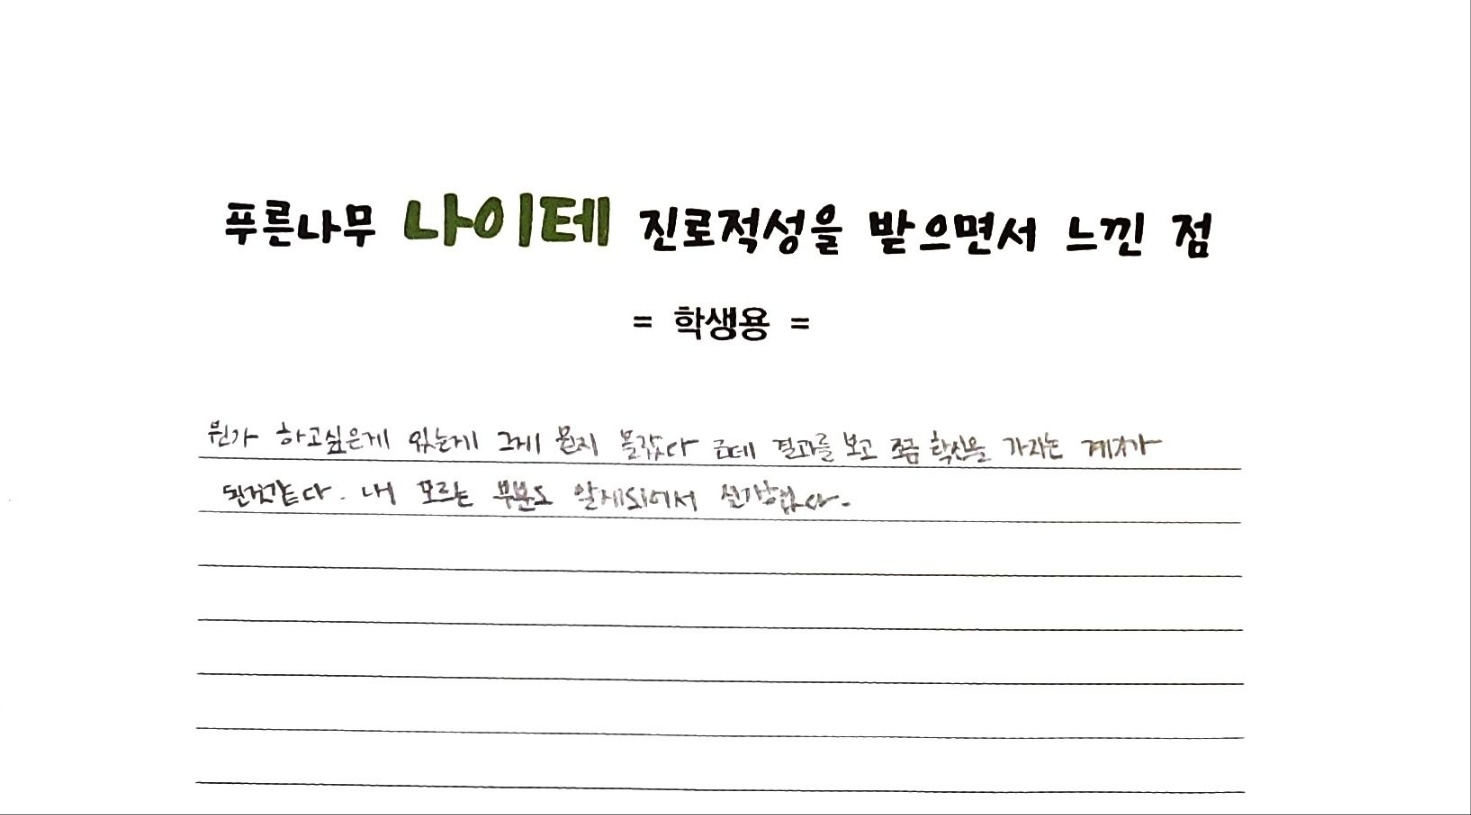 푸른나무 나이테 진로적성을 받으면서 느낀 점
= 학생용 =
뭔가 하고싶은게 있는데 그게 뭔지 몰랐다 근데 결과를 보고 조금 확신을 가지는 계기가
된것같다. 내 모르는 부분도 알게되어서 신기했다.